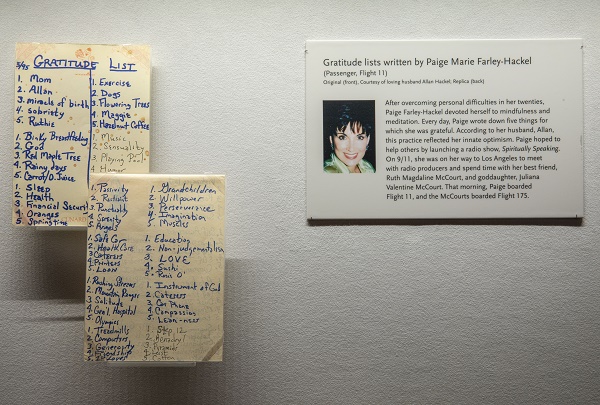 5/95 GRATITUDE LIST
1. Mom
2. Allan
3. miracle of birth
4. sobriety
5. Ruthie
1. Exercise
2. Dogs
3. Flowering Trees
4. Maggie
5. Hazelnut Coffee
1. Binky Breastfeeding
2. God
3. Red Maple Tree
4. Rainy days
5. Carrot/O. Juice
1. Music
2. Sensuality
3. Playing Pool
4. Humor
1. Sleep
2. Health
3. Financial Security
4. Oranges
5. Springtime
1. Positivity
2. Restraint
3. Punctuality
4. Serenity
5. Angels
1. Grandchildren
2. Willpower
3. Perserverance
4. Imagination
5. Muscles
1. Safe Car
2. Health Care
3. Caterers
4. Printers
5. Loan
1. Education
2. Non-judgementalism
3. LOVE
4. Sushi
5.
1. Rushing Streams
2. Mountain Ranges
3. Solitude
4. Hospital
5. Olympics
1. Instrument of God
2. Caterers
3. Car Phone
4. Compassion
5. Lean-ness
1. Treadmills
2. Computers
3. Generosity
4. Friendship
5.
1. Step 12
2. Benadryl
3. Pyramids
4.
5.
Gratitude lists written by Paige Marie Farley-Hackel
(Passenger, Flight 11)
Original (front), Courtesy of loving husband Allan Hackel; Replica (back)
After overcoming personal difficulties in her twenties,
Paige Farley-Hackel devoted herself to mindfulness and
meditation. Every day, Paige wrote down five things for
which she was grateful. According to her husband, Allan,
this practice reflected her innate optimism. Paige hoped to
help others by launching a radio show, Spiritually Speaking.
On 9/11, she was on her way to Los Angeles to meet
with radio producers and spend time with her best friend,
Ruth Magdaline McCourt, and goddaughter, Juliana
Valentine McCourt. That morning, Paige boarded
Flight 11, and the McCourts boarded Flight 175.